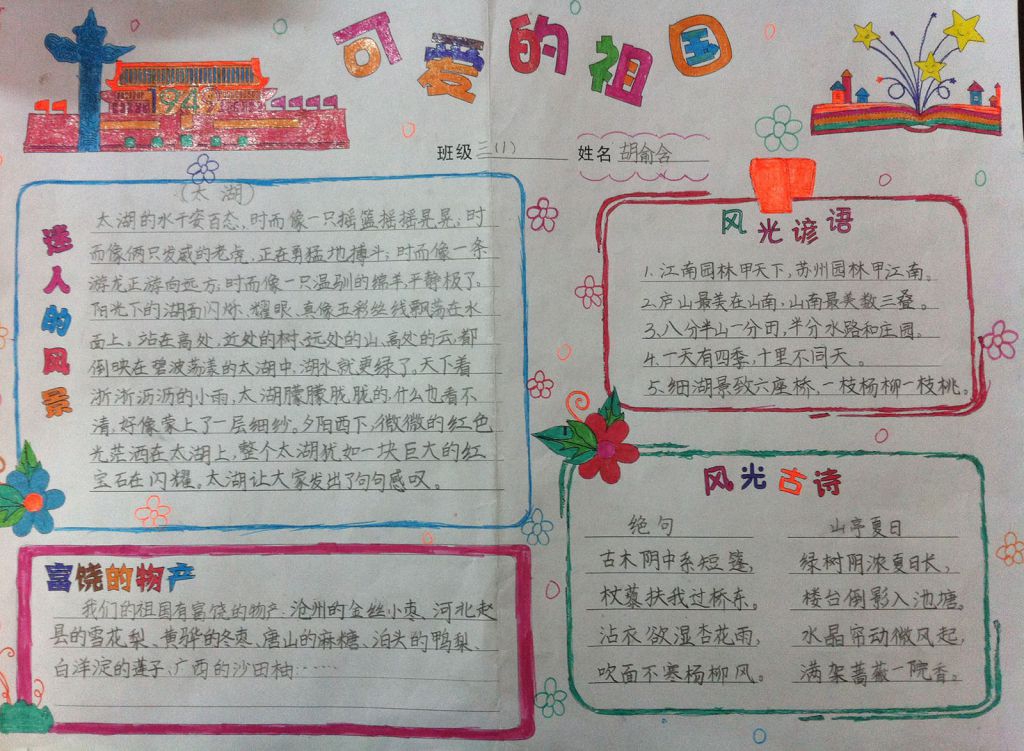 可爱的祖国
1949
班级三(1) 姓名胡俞含
迷人的风景
(太湖)
太湖的水千姿百态,时而像一只摇篮摇摇晃晃;时
而像俩只发威的老虎,正在勇猛地搏斗;时而像一条
游龙正游向远方;时而像一只温驯的绵羊平静极了。
阳光下的湖面闪烁、耀眼、真像五彩丝线飘荡在水
面上。站在高处,近处的树、远处的山、高处的云,都
倒映在碧波荡漾的太湖中,湖水就更绿了。天下着
浙浙沥沥的小雨,太湖朦朦胧胧的,什么也看不
清,好像蒙上了一层细纱。夕阳西下,微微的红色
光茫洒在太湖上,整个太湖犹如一块巨大的红
宝石在闪耀。太湖让大家发出了句句感叹。
富饶的物产
我们的祖国有富饶的物产、沧州的金丝小枣、河北赵
县的雪花梨、黄骅的冬枣、唐山的麻糖、泊头的鸭梨、
白洋淀的莲子、广西的沙田柚……
风光谚语
1.江南园林甲天下,苏州园林甲江南。
2.庐山最美在山南,山南最美数三叠。
3.八分半山一分田,半分水路和庄园。
4.一天有四季,十里不同天。
5.细湖景致六座桥,一枝杨柳一枝桃。
风光古诗
绝句
古木阴中系短篷,
杖藜扶我过桥东。
沾衣欲湿杏花雨,
吹面不寒杨柳风。
山亭夏日
绿树阴浓夏日长,
楼台倒影入池塘。
水晶帘动微风起,
满架蔷薇一院香。